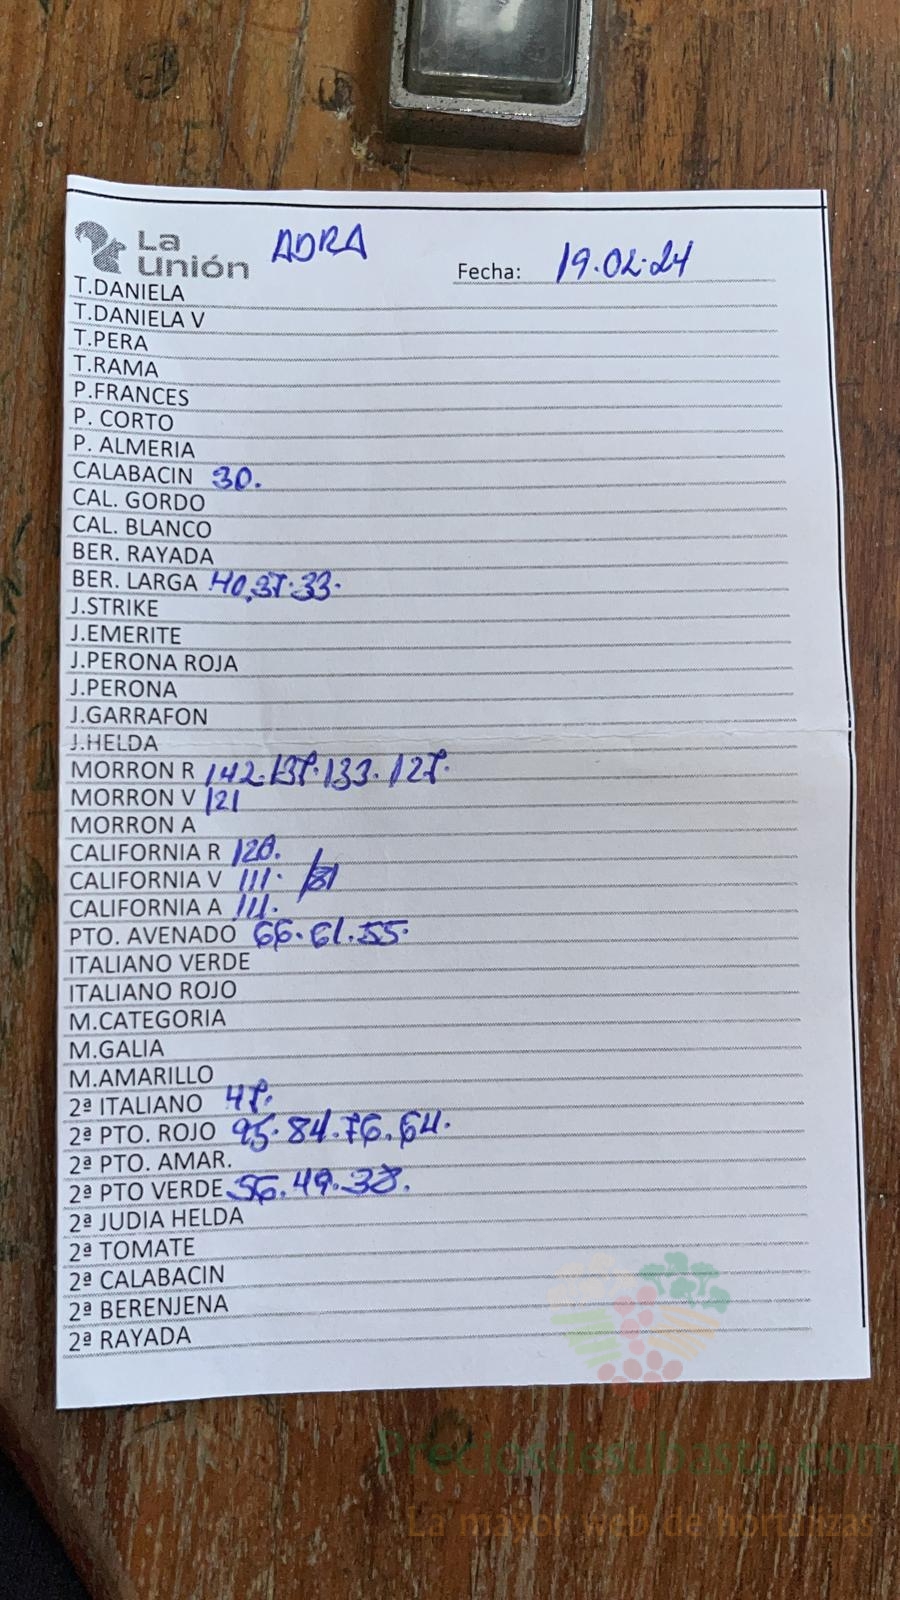 La Unión ADRA
Fecha: 19.02.24
T.DANELA
T.DANIELA V
T.PERA
T.RAMA
P.FRANCES
P. CORTO
P. ALMERIA
CALABACIN 30.
CAL. GORDO
CAL. BLANCO
BER. RAYADA
BER. LARGA 40.37.33.
J.STRIKE
J.EMERITE
J.PERONA ROJA
J.PERONA
J.GARRAFON
J.HELDA
MORRON R 142.137.133.127.
MORRON V 121
MORRON A
CALIFORNIA R 120.
CALIFORNIA V 111. /81
CALIFORNIA A 111.
PTO. AVENADO 66.61.55.
ITALIANO VERDE
ITALIANO ROJO
M.CATEGORIA
M.GALIA
M.AMARILLO
2ª ITALIANO 47.
2ª PTO. ROJO 95.84.76.64.
2ª PTO. AMAR.
2ª PTO VERDE 56.49.38.
2ª JUDIA HELDA
2ª TOMATE
2ª CALABACIN
2ª BERENJENA
2ª RAYADA
Preciosdesubasta.com
La mayor web de hortalizas